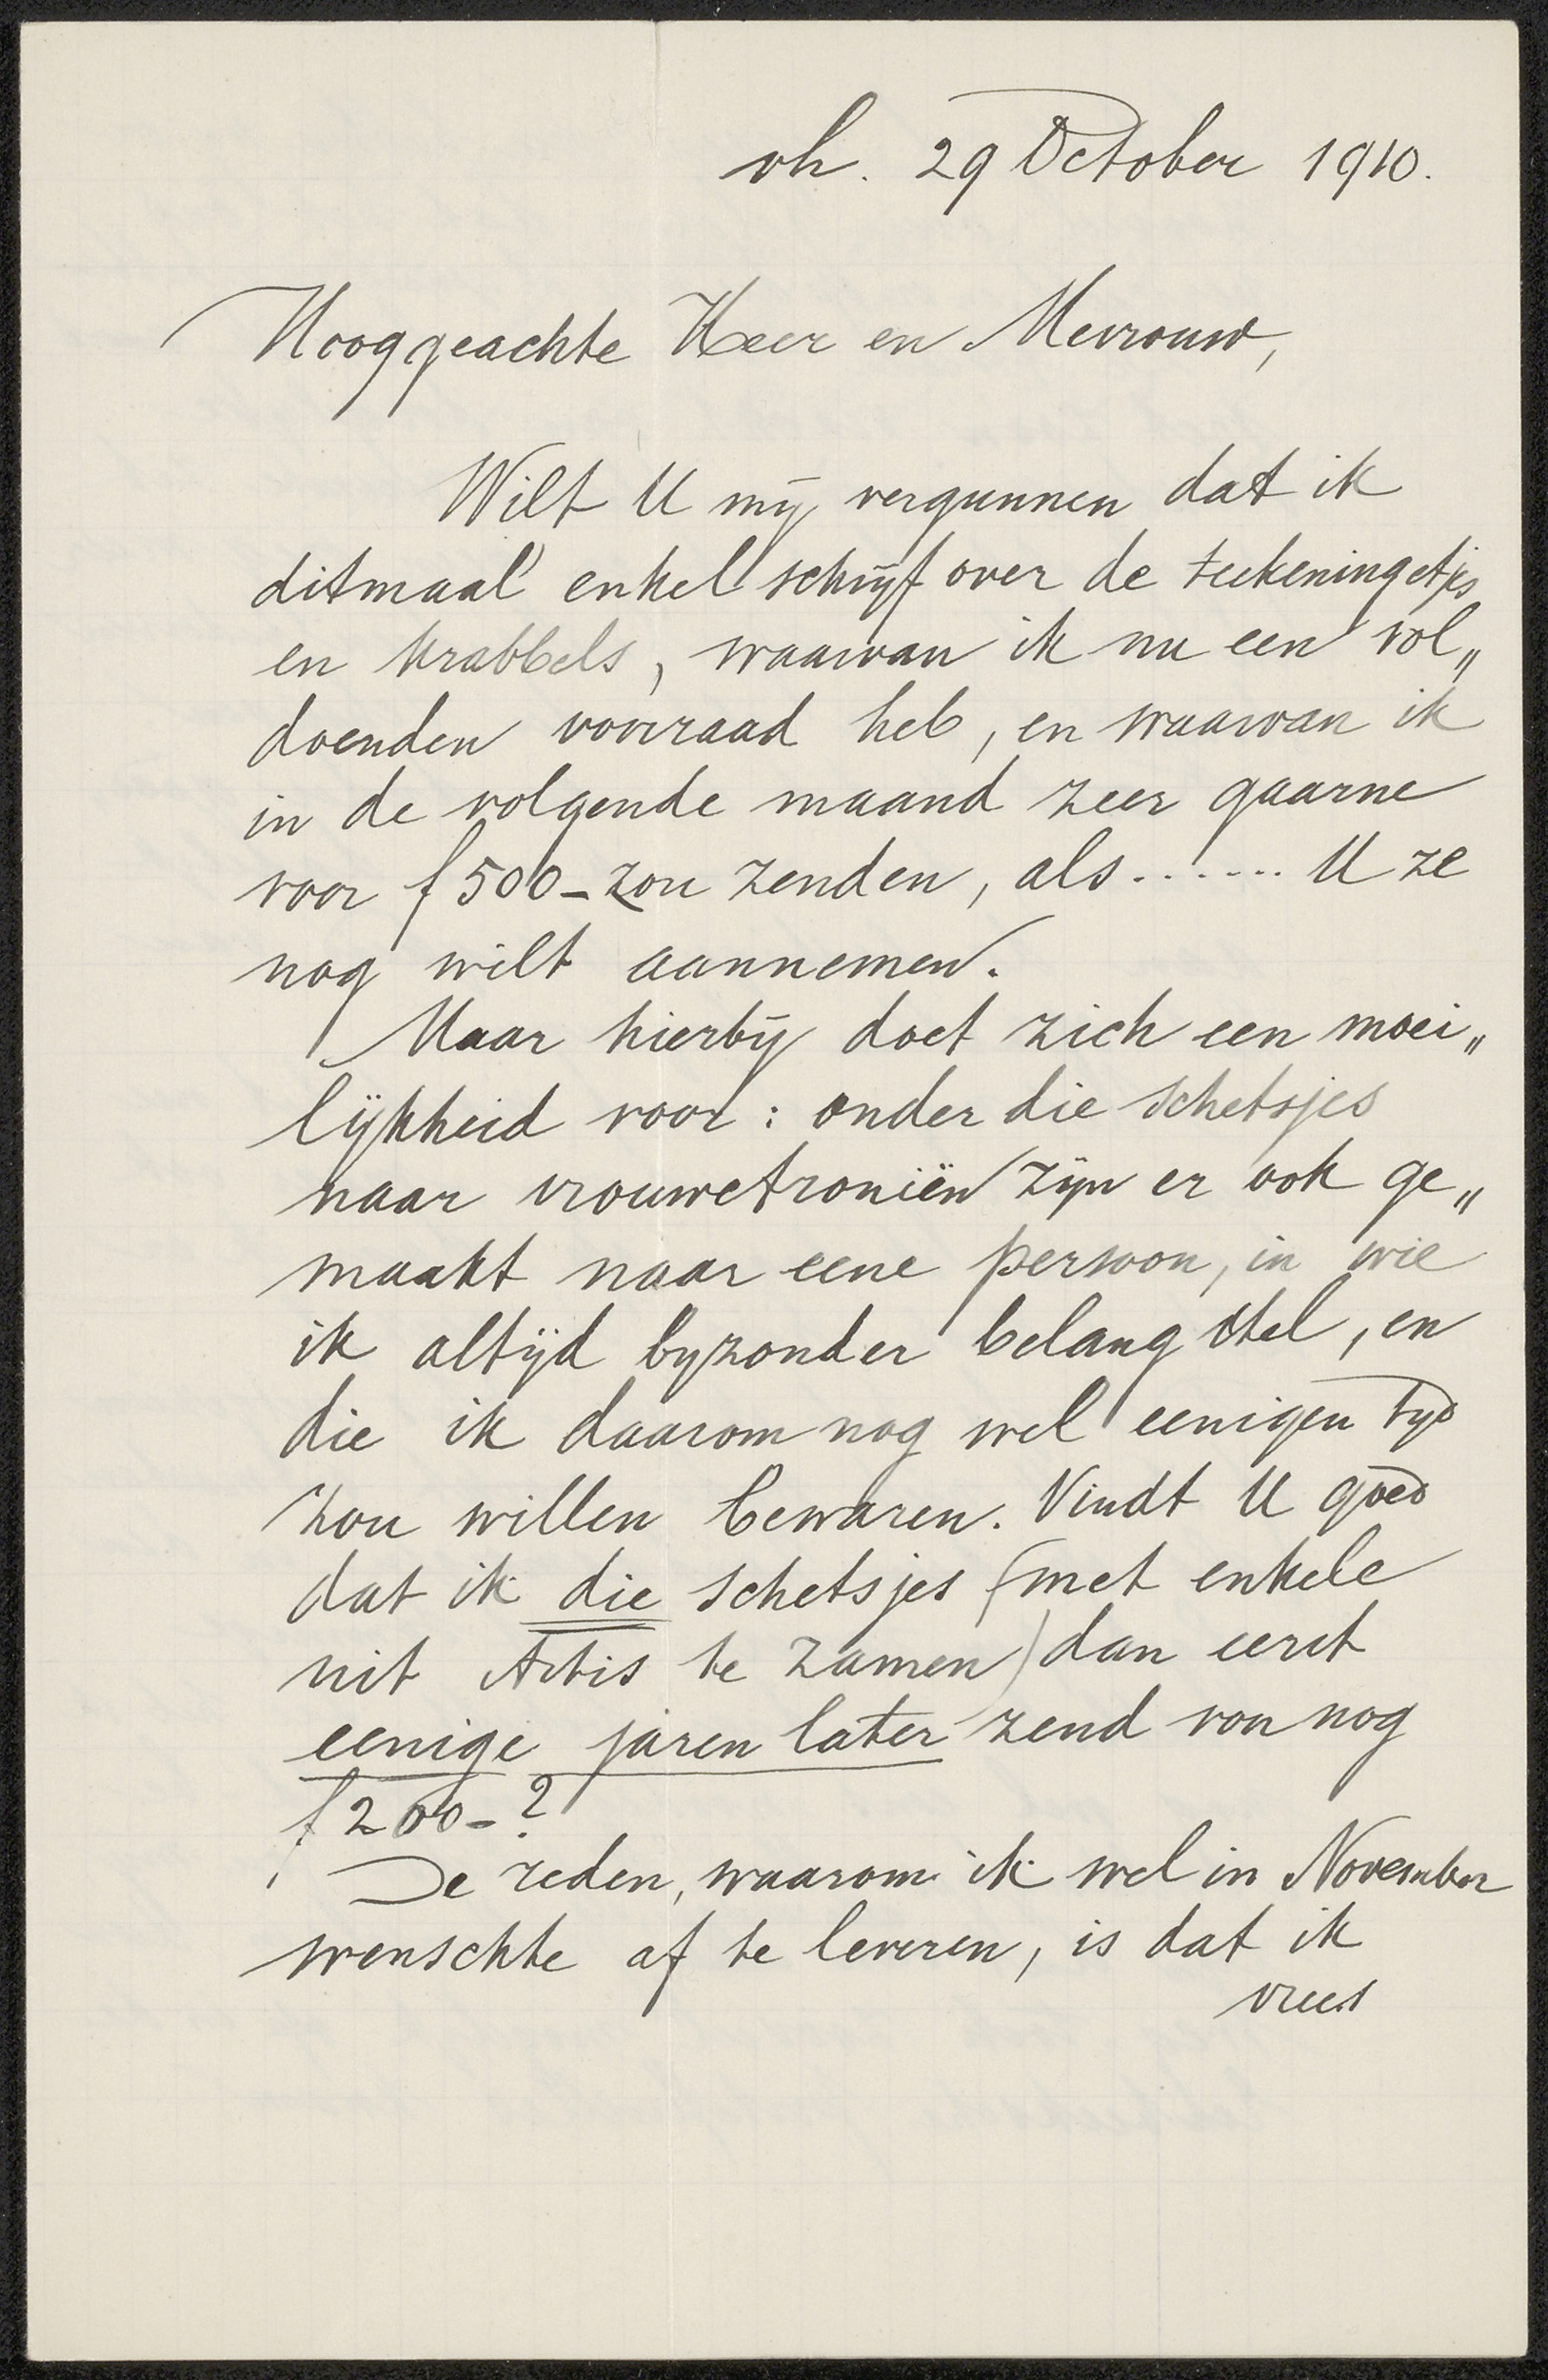 vh. 29 October 1910.
Hooggeachte Heer en Mevrouw,
Wilt U mij vergunnen dat ik
ditmaal enkel schrijf over de teekeningetjes
en krabbels, waarvan ik nu een vol„
doenden voorraad heb, en waarvan ik
in de volgende maand zeer gaarne
voor f 500- zou zenden, als ...... U ze
nog wilt aannemen.
Maar hierbij doet zich een moei„
lijkheid voor: onder die schetsjes
naar vrouwetroniën zijn er ook ge„
maakt naar eene persoon, in wie
ik altijd byzonder belang stel, en
die ik daarom nog wel eenigen tyd
zou willen bewaren. Vindt U goed
dat ik die schetsjes (met enkele
uit Artis te zamen) dan eerst
eenige jaren later zend voor nog
f 200-?
De reden, waarom ik wel in November
wenschte af te leveren, is dat ik
vrees